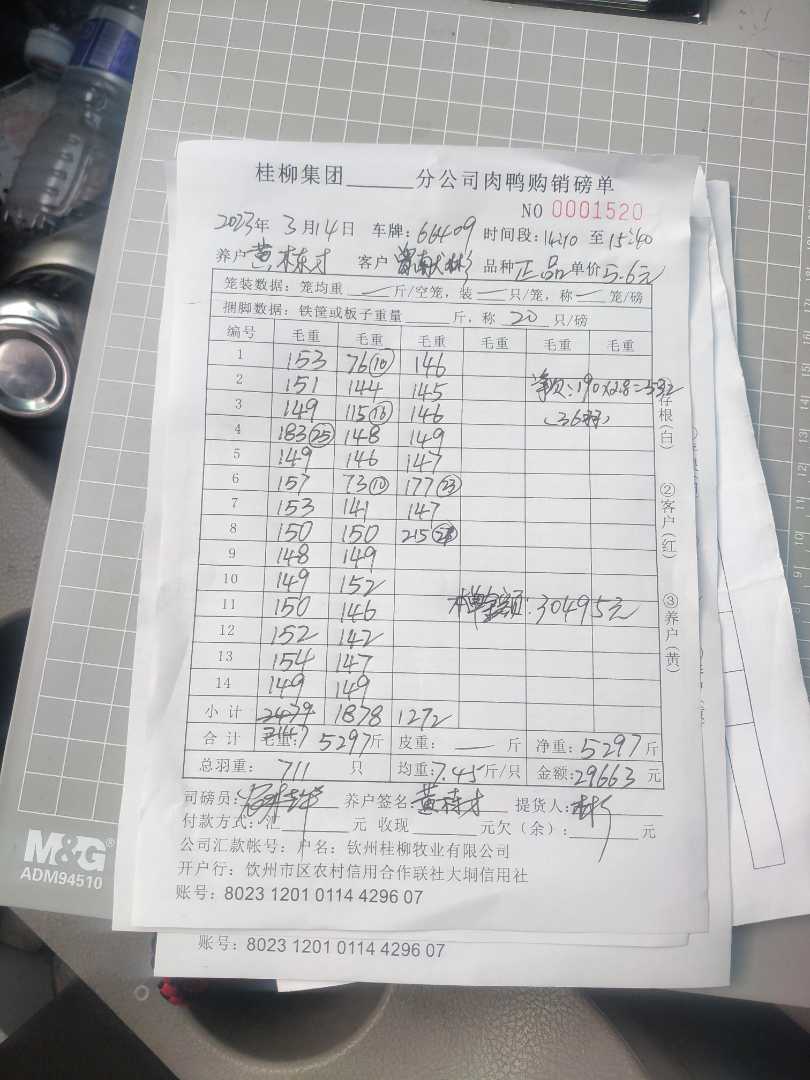 桂柳集团______分公司肉鸭购销磅单
NO 0001520
2023年 3月14日 车牌: 66409 时间段: 14:10 至 15:40
养户 黄栋才 客户 品种 正品 单价 5.6元
笼装数据: 笼均重 — 斤/空笼, 装 — 只/笼, 称 — 笼/磅
捆脚数据: 铁筐或板子重量____斤, 称 20 只/磅
编号 毛重 毛重 毛重 毛重 毛重 毛重
1 153 76⑩ 146
2 151 144 145 净贝: 190×2.8=532
3 149 115⑯ 146 (36羽)
4 183㉕ 148 149
5 149 146 147
6 157 73⑩ 177㉓
7 153 141 147
8 150 150 215
9 148 149
10 149 152
11 150 146 本单金额: 30495元
12 152 142
13 154 147
14 149 149
小计 2147 1878 1272
合计 毛重: 5297斤 皮重: — 斤 净重: 5297斤
总羽重: 711 只 均重: 7.45斤/只 金额: 29663元
司磅员: 养户签名: 黄栋才 提货人:
付款方式: 汇______元 收现______元欠(余): ______元
公司汇款帐号: 户名: 钦州桂柳牧业有限公司
开户行: 钦州市区农村信用合作联社大垌信用社
账号: 8023 1201 0114 4296 07
账号: 8023 1201 0114 4296 07
①存根(白)
②客户(红)
③养户(黄)
M&G
ADM94510